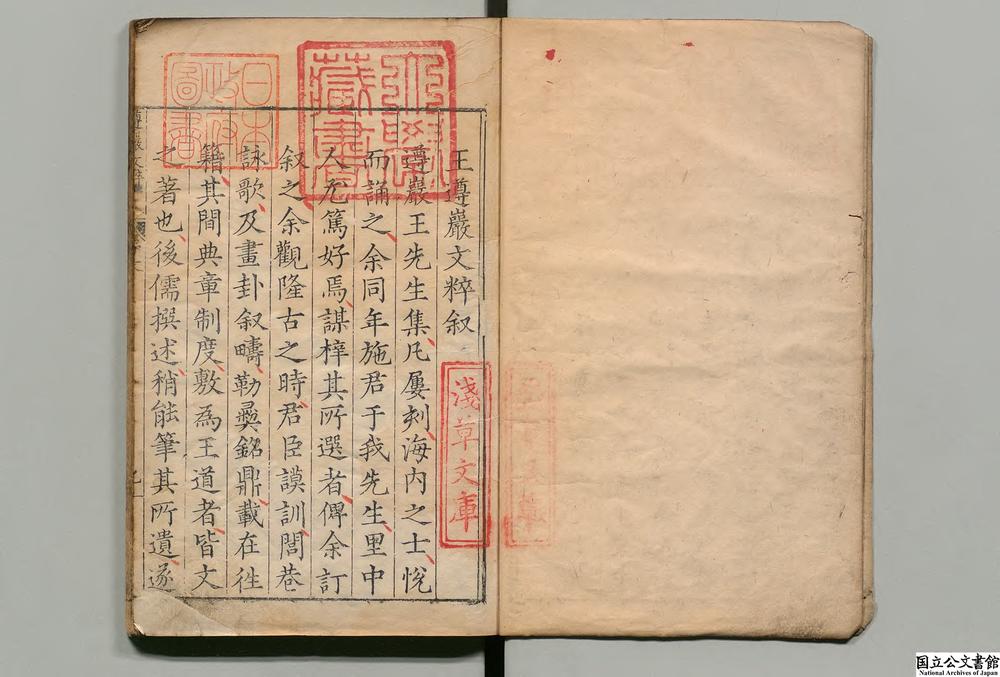 王遵巖文粹叙
遵巖王先生集凢屢刻海内之士悅
而誦之余同年施君于我先生里中
人尤篤好焉謀梓其所選者俾余訂
叙之余觀隆古之時君臣謨訓閭巷
詠歌及畫卦叙疇勒彝銘鼎載在徃
籍其間典章制度敷為王道者皆文
之著也後儒撰述稍能筆其所遺遂
淺草文庫
日本
政府
圖書
藏書
国立公文書館
National Archives of Japan